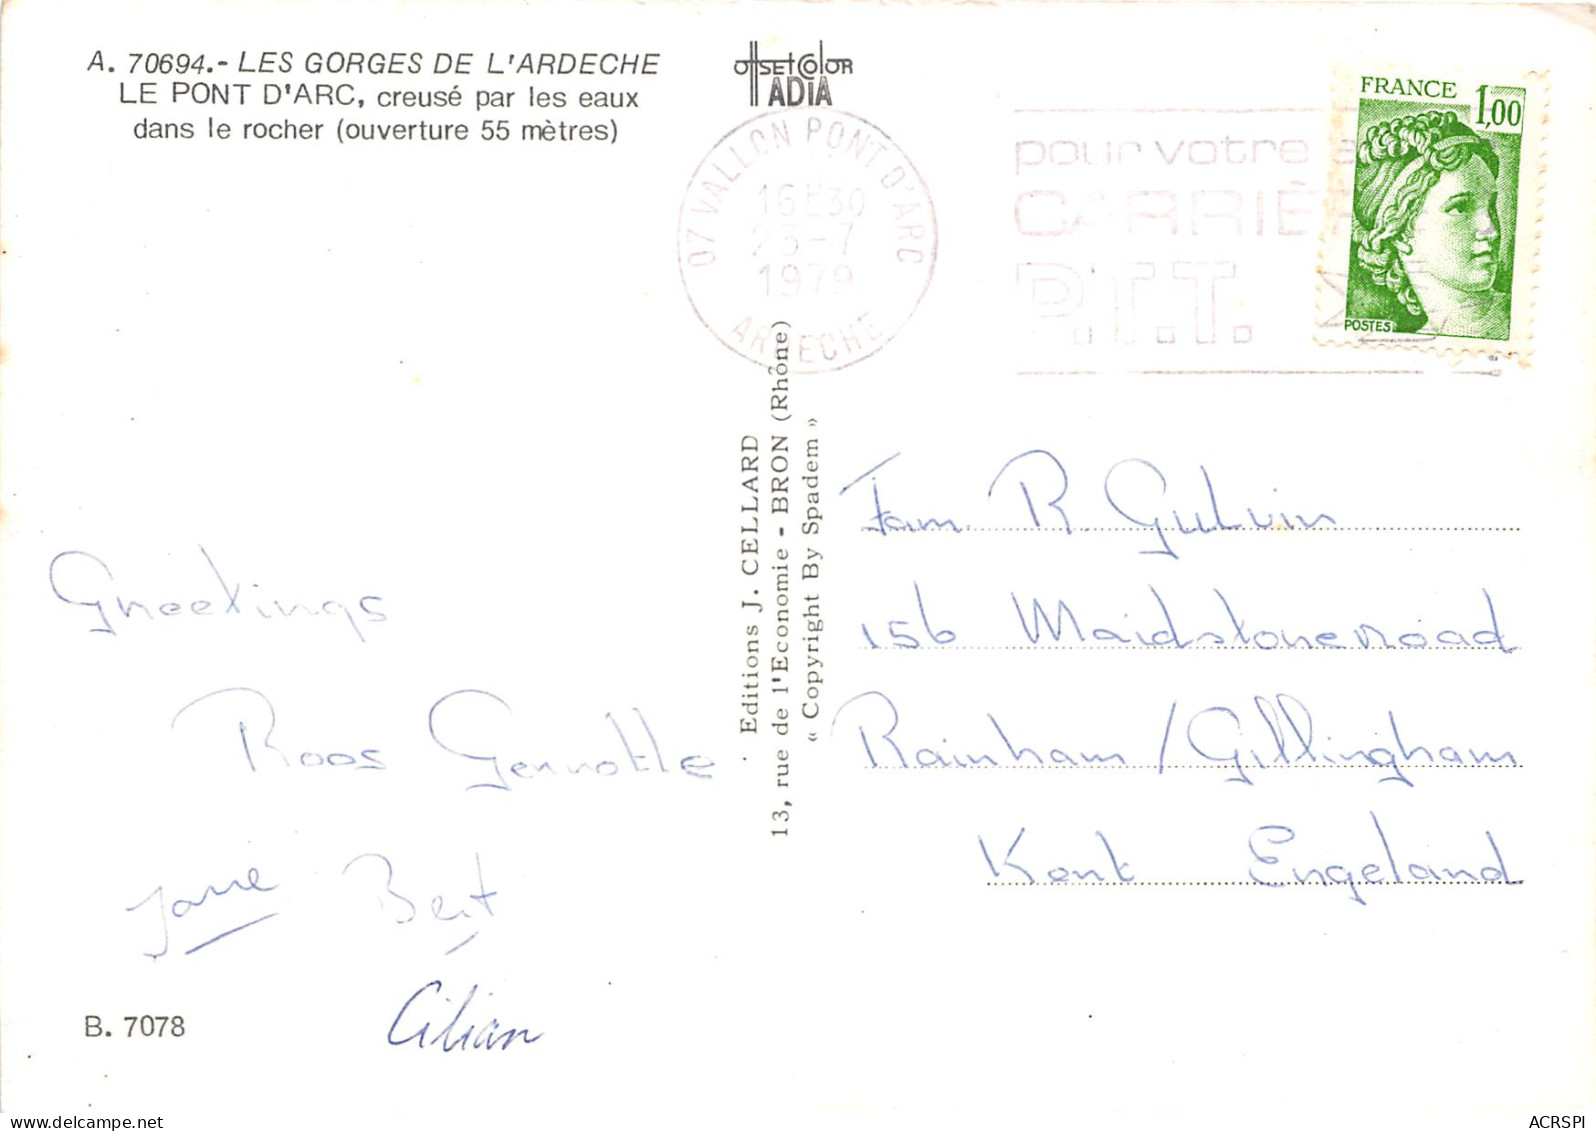 A. 70694.- LES GORGES DE L'ARDECHE
LE PONT D'ARC, creusé par les eaux
dans le rocher (ouverture 55 mètres)
offset color
ADIA
07 VALLON PONT D'ARC
16H30
-7
1979
ARDECHE
pour votre
CARRIÈR
P.T.T.
FRANCE 1,00
POSTES
Editions J. CELLARD
13, rue de l'Economie - BRON (Rhône)
« Copyright By Spadem »
Greetings
Roos
Bert
Cilian
B. 7078
Fam. R. Gulvin
156 Maidstoneroad
Rainham/Gillingham
Kent Engeland
www.delcampe.net
ACRSPI